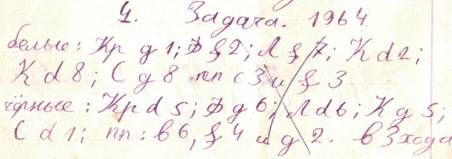 4. Задача. 1964
белые: Кр g1; Ф f2; Л f7; К d2;
К d8; С g8 пп c3 и f3
чёрные: Кр d5; Ф g6; Л d6; К g5;
С d1; пп: b6, f4 и g2. в 3 хода